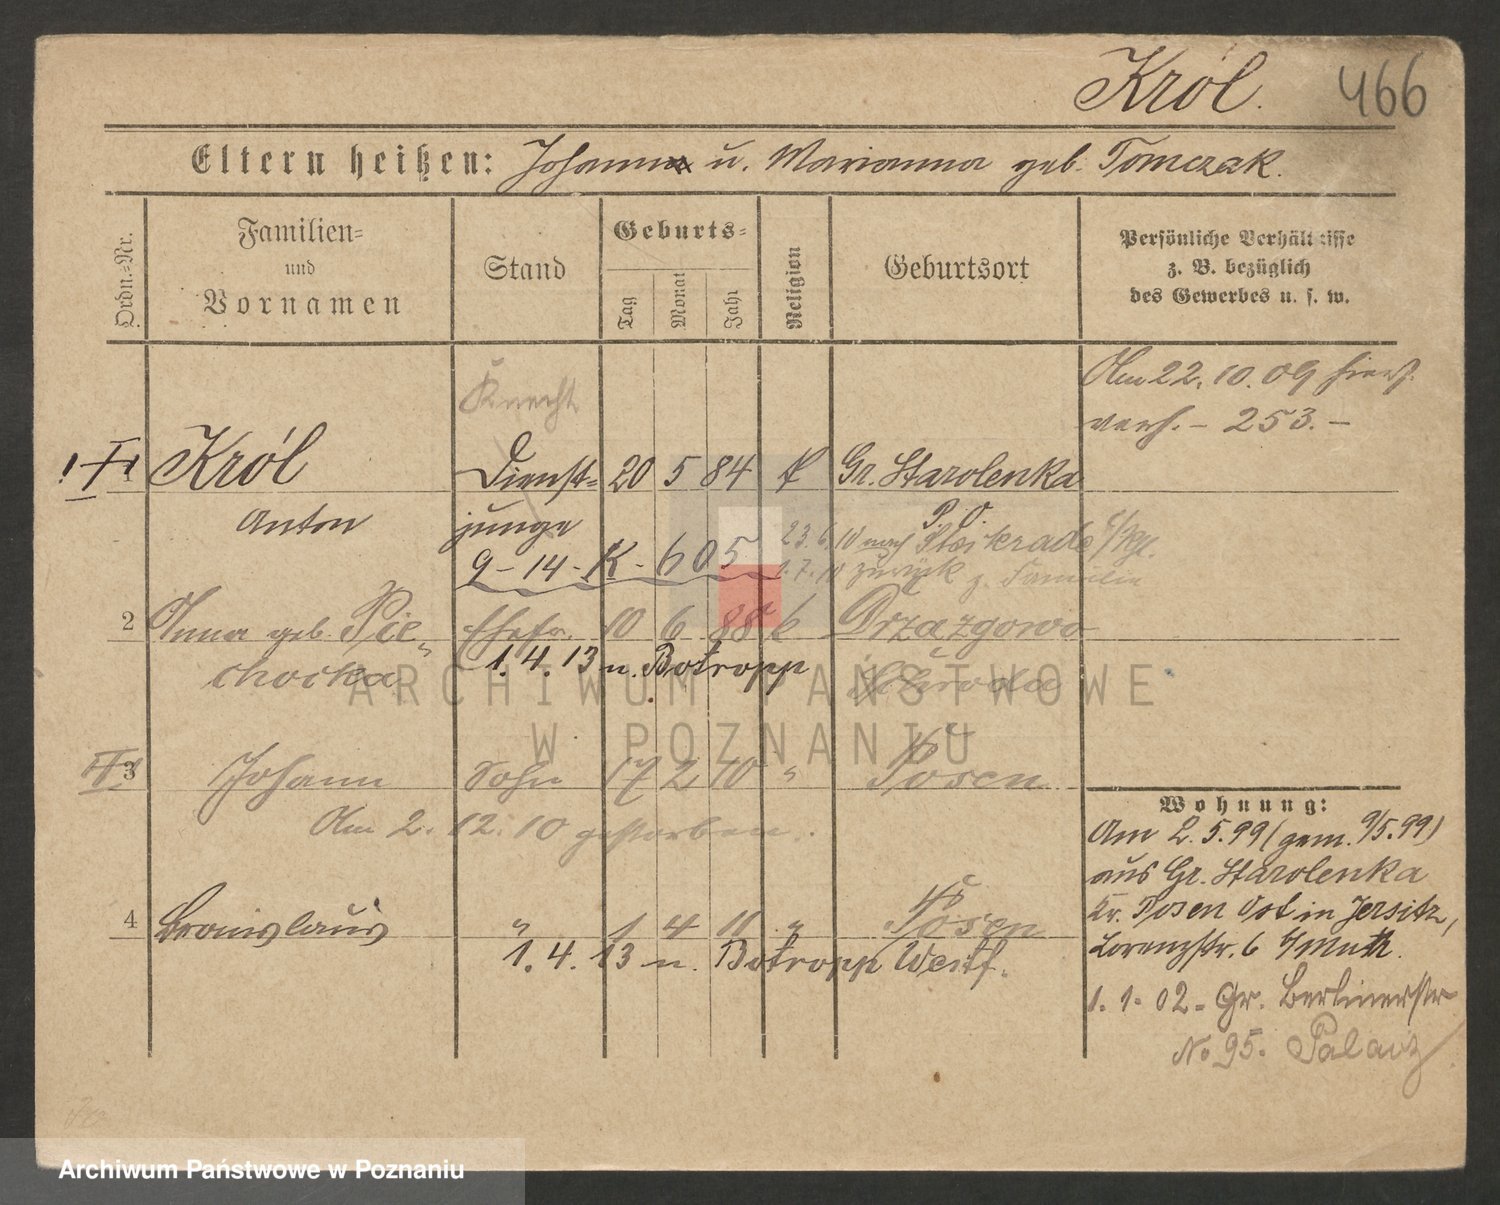 Król. 466
Eltern heißen: Johann u. Marianna geb. Tomczak.
Ordn.-Nr.
Familien-
und
Vornamen
Stand
Geburts-
Tag
Monat
Jahr
Religion
Geburtsort
Persönliche Verhältnisse
z. B. bezüglich
des Gewerbes u. s. w.
Am 22.10.09 hier
verh. - 253. -
Knecht
1 Król Dienst- 20 5 84 k Gr. Starolenka
Anton junge P. O.
9-14-K-605
23.6.10 nach
1.7.10 zurück z. Familie
2 Anna geb. Pie- Ehefr. 10 6 88 k Drzazgowo
chocka 1.4.13 n. Botropp Schroda
3 Johann Sohn 17 2 10 " Posen
Am 2.12.10 gestorben.
4 Bronislaus " 1 4 11 " Posen
1.4.13 n. Botropp Westf.
Wohnung:
Am 2.5.99 (gem. 9/5.99)
aus Gr. Starolenka
Kr. Posen Ost in Jersitz,
Lorenzstr. 6 b/ Muth.
1.1.02 - Gr. Berlinerstr
No 95. Palacz
ARCHIWUM PAŃSTWOWE
W POZNANIU
Archiwum Państwowe w Poznaniu